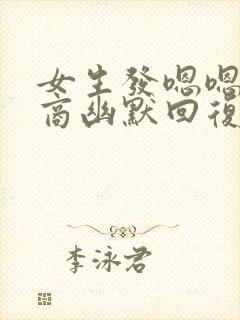 女生發嗯嗯
商幽默回復
李泳君